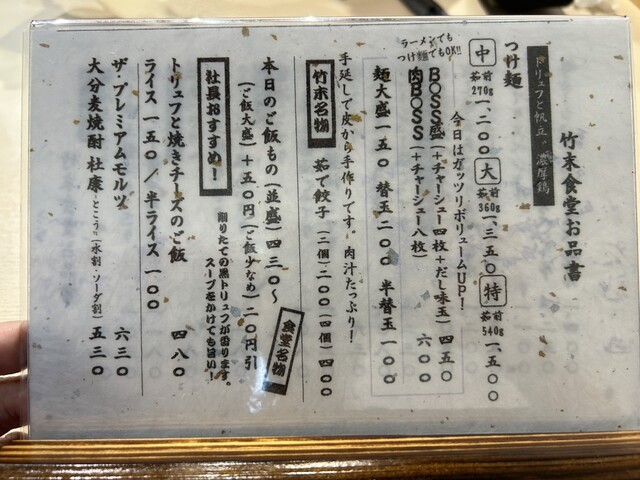 竹末食堂お品書
トリュフと帆立、濃厚鶏
つけ麺
中 茹前270g 一、二〇〇 大 茹前360g 一、三五〇 特 茹前540g 一、五〇〇
ラーメンでも
つけ麺でもOK!!
今日はガッツリボリュームUP!
BOSS盛(+チャーシュー四枚+だし味玉) 四五〇
肉BOSS(+チャーシュー八枚) 六〇〇
麺大盛 一五〇 替玉 二〇〇 半替玉 一〇〇
手延しで皮から手作りです。肉汁たっぷり!
竹末名物 茹で餃子(二個)二〇〇(四個)四〇〇
本日のご飯もの(並盛)四三〇〜
(ご飯大盛)+五〇円(ご飯少なめ)二〇円引
食堂名物
社長おすすめ! 削りたての黒トリュフが香ります。
スープをかけても旨い!
トリュフと焼きチーズのご飯 四八〇
ライス 一五〇/半ライス 一〇〇
ザ・プレミアムモルツ 六三〇
大分麦焼酎 杜康-とこう-(水割・ソーダ割) 五三〇